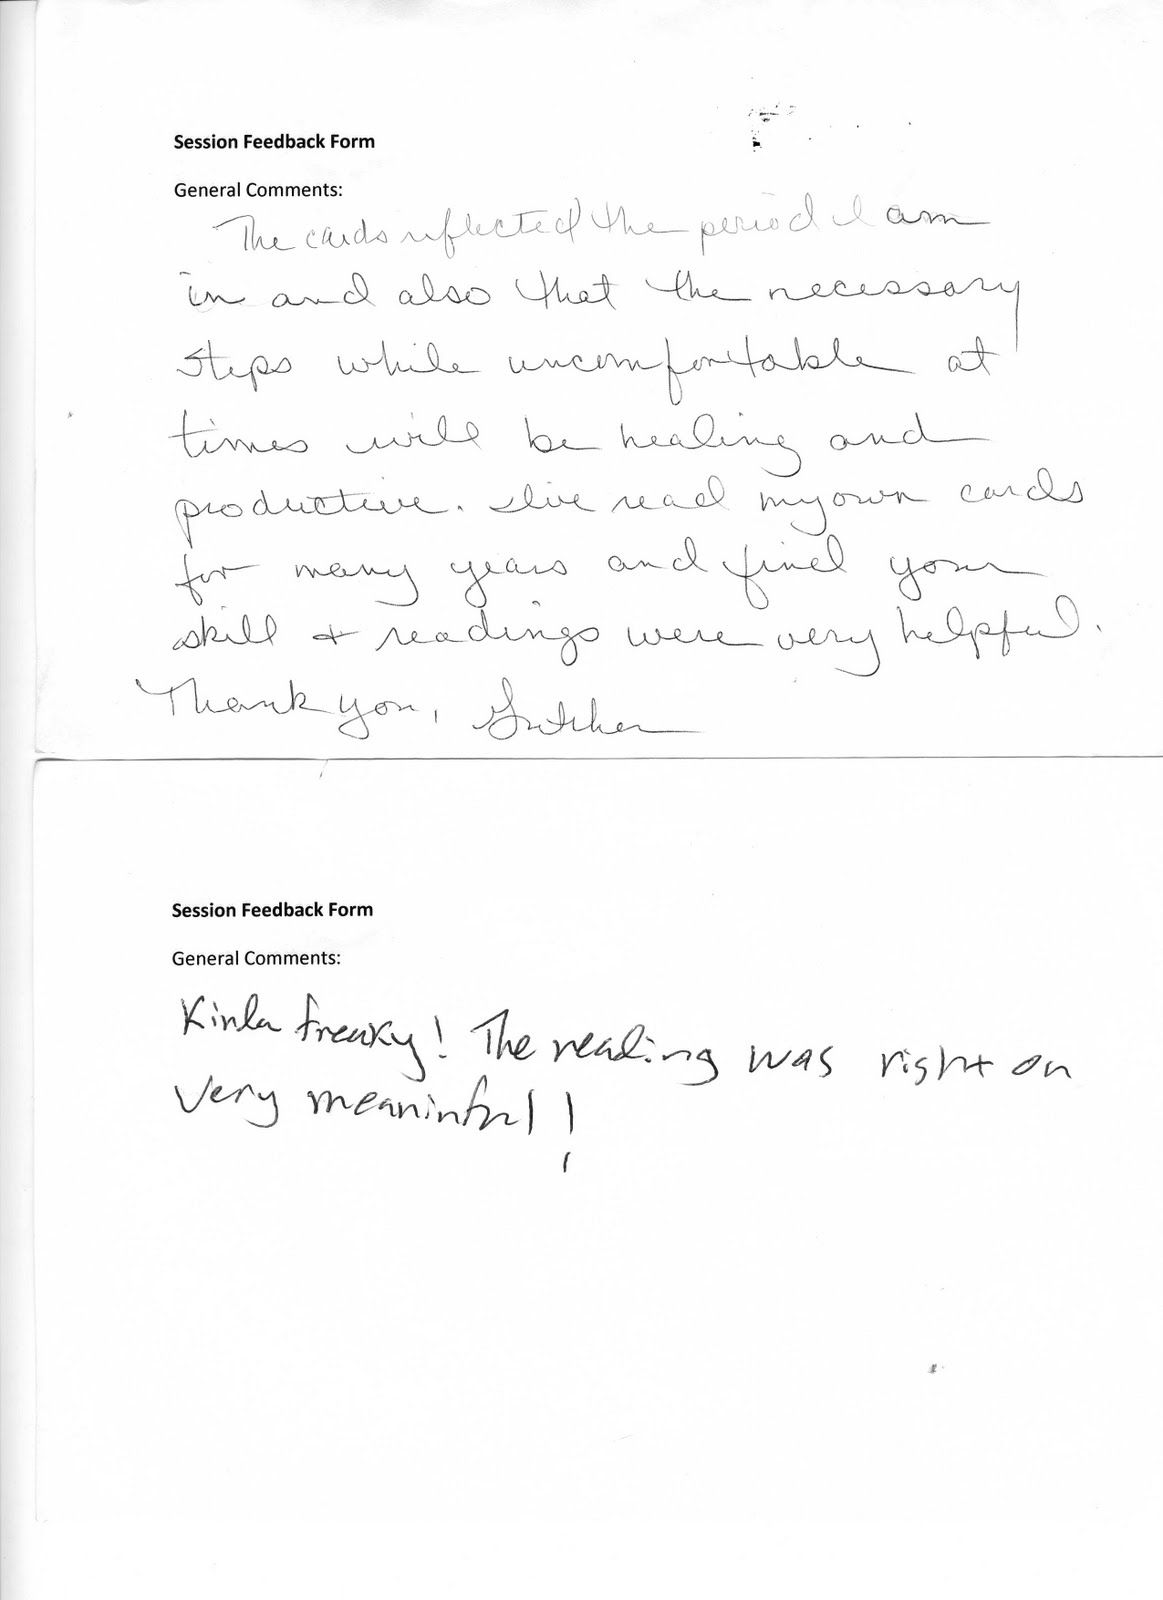 Session Feedback Form
General Comments:
The cards reflected the period I am
in and also that the necessary
steps while uncomfortable at
times will be healing and
productive. I've read my own cards
for many years and find your
skill + readings were very helpful.
Thank you,
Session Feedback Form
General Comments:
Kinda freaky! The reading was right on
very meaninful!